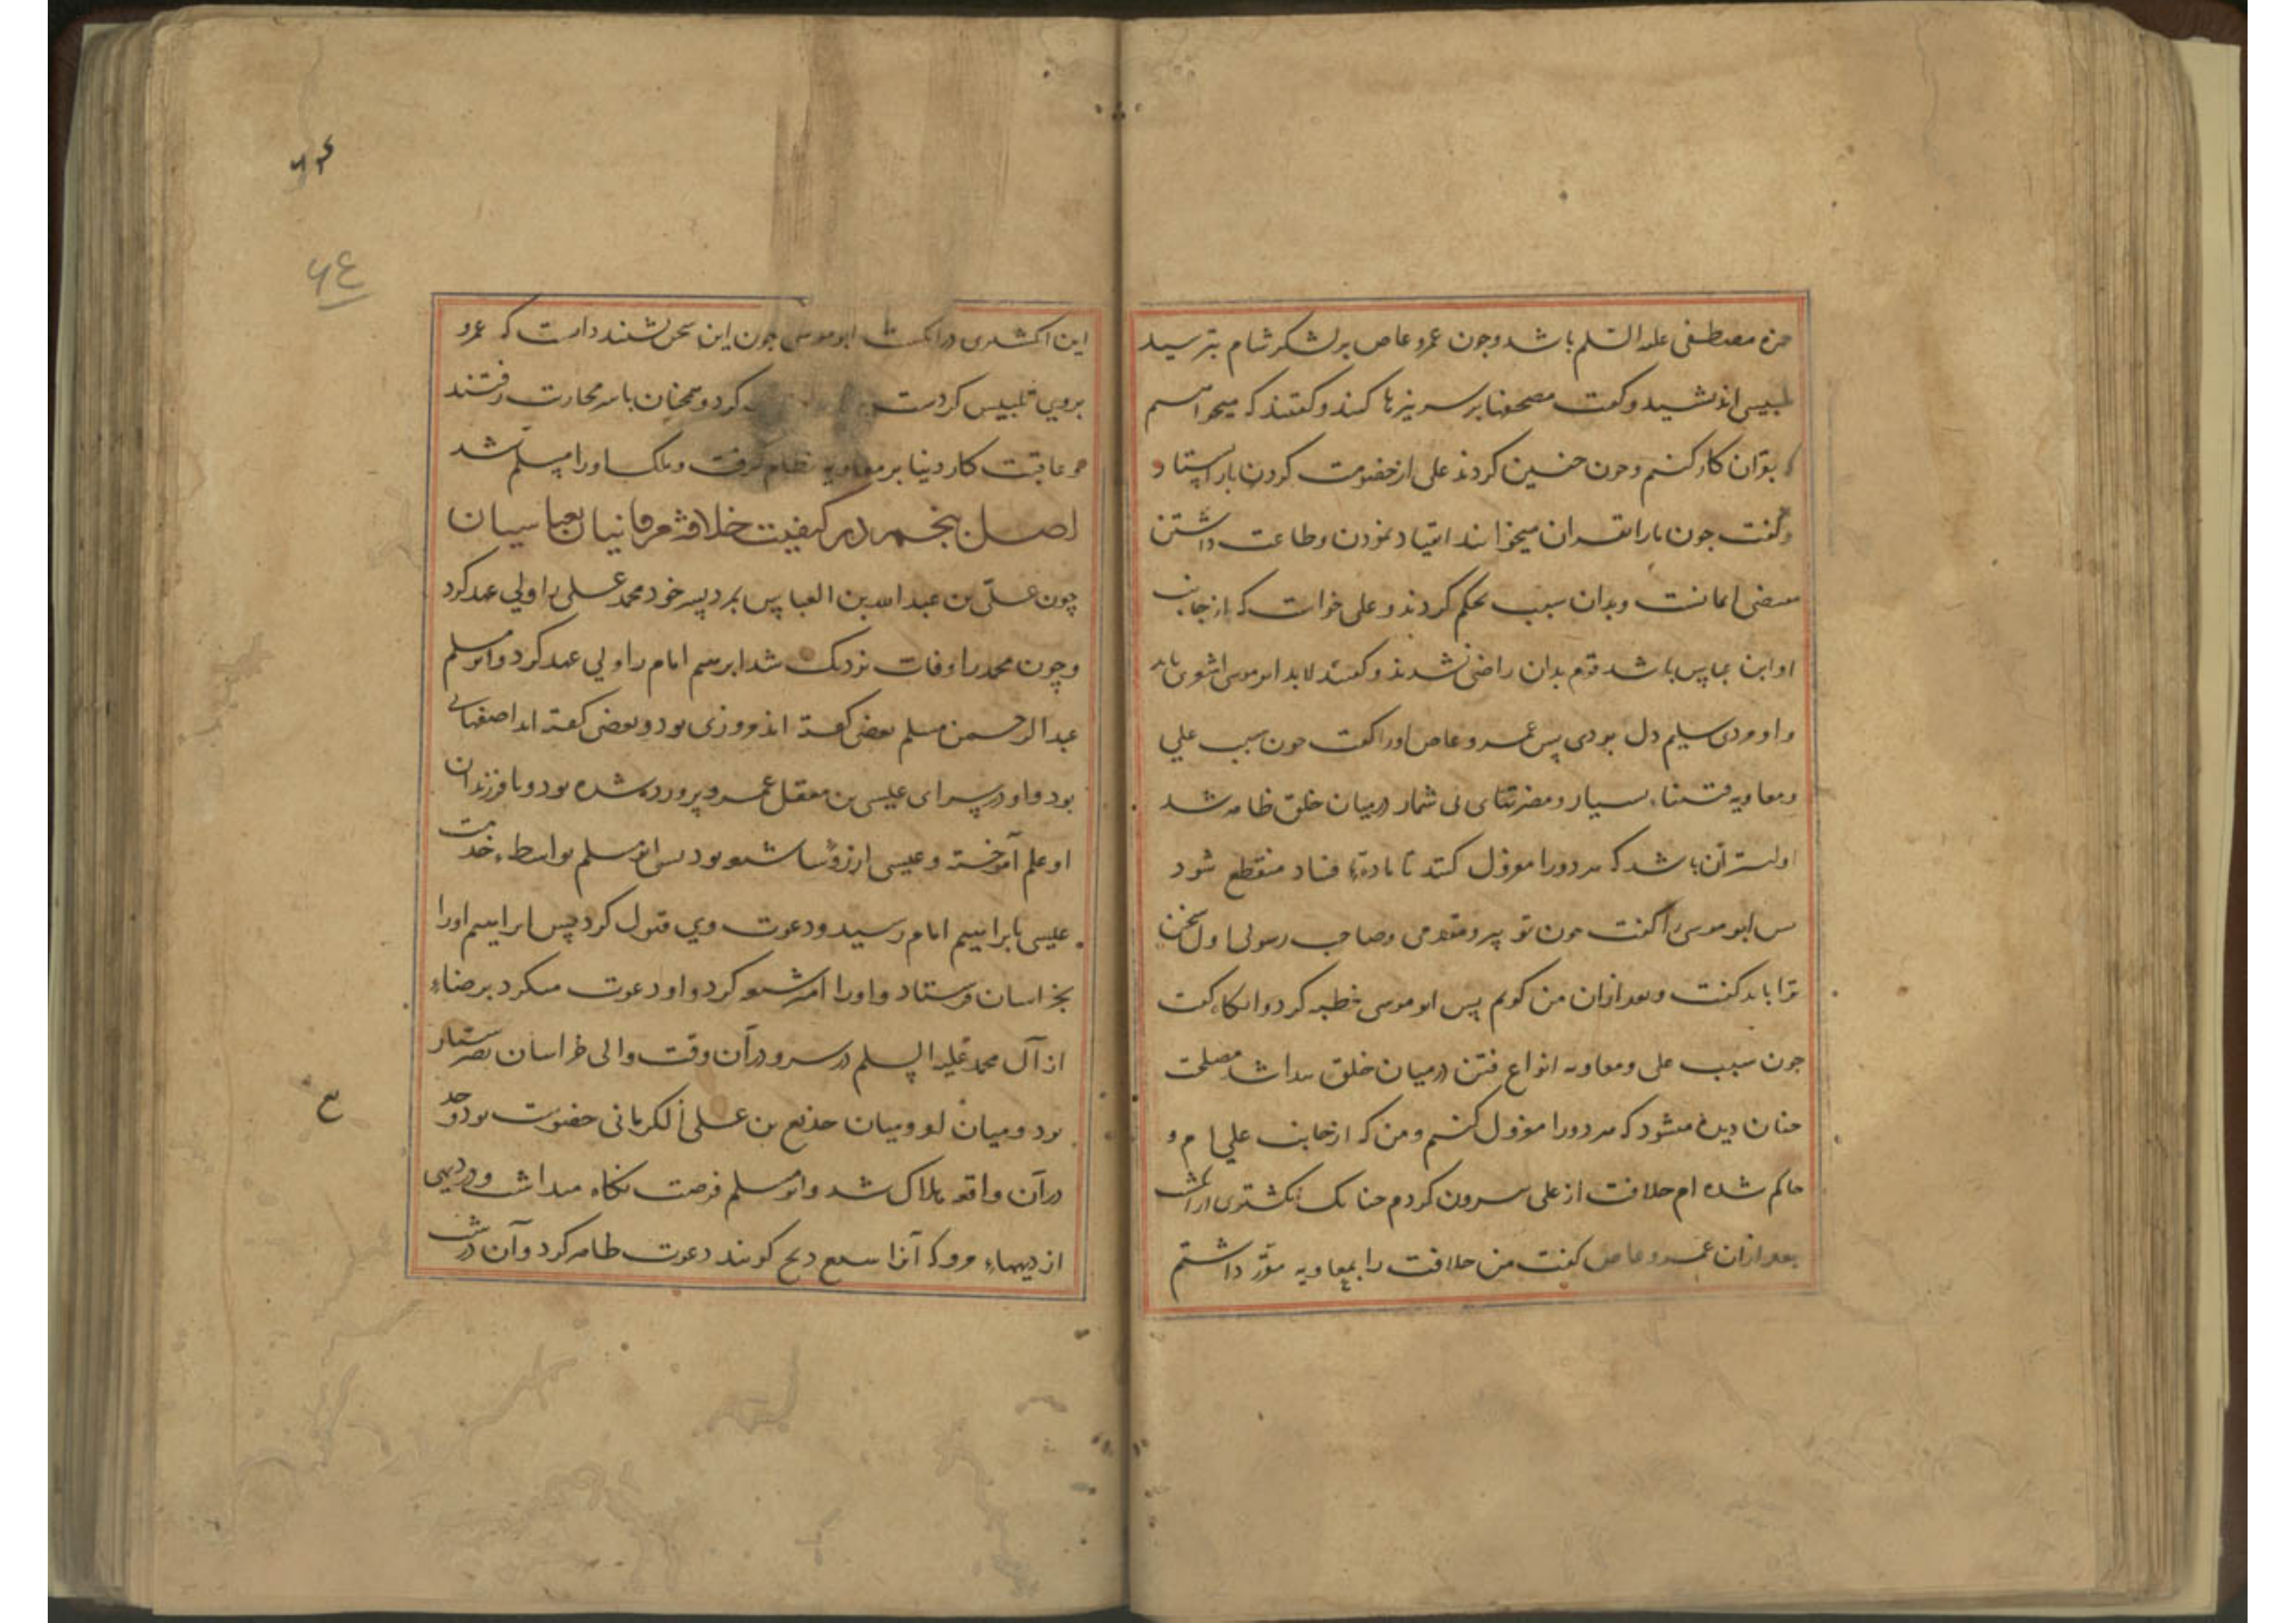 حزه مصطفی علیه السلم باشد و چون عمرو عاص بر لشکر شام بترسید
تلبیسی اندیشید و گفت مصحفها بر سر نیزها کنند و گفتند که میخواهیم
بقرآن کار کنیم و چون چنین کردند علی از خصومت کردن باز ایستاد
و گفت چون ما را بقران میخوانند انقیاد نمودن و طاعت داشتن
مقتضی ایمانست و بدان سبب تحکیم کردند و علی خواست که از جانب
او ابن عباس باشد قوم بدان راضی نشدند و گفتند لابد ابوموسی اشعری باید
و او مردی سلیم دل بودی پس عمرو عاص او را گفت چون بسبب علی
و معاویه فتنهاء بسیار و مضرتهای بی شمار در میان خلق ظاهر شد
اولیتر آن باشد که هر دو را معزول کنند تا مادتهاء فساد منقطع شود
پس ابو موسی را گفت چون تو پیر و مقدمی و صاحب رسولی اول سخن
ترا باید گفت و بعد از ان من گویم پس ابو موسی خطبه کرد و انگاه گفت
چون بسبب علی و معاویه انواع فتن در میان خلق پیدا شد مصلحت
چنان دیده میشود که هر دو را معزول کنیم و من که از جانب علی ام و
حاکم شده ام خلافت از علی بیرون کردم چنانک انگشتری از انگشت
بعد از ان عمرو عاص گفت من خلافت را بمعاویه مقرر داشتم
این انگشتری در انگشت ابوموسی چون این سخن بشنید دانست که عمرو
بروی تلبیس کردست کرد و همچنان باسر محاربت رفتند
و عاقبت کار دنیا بر معاویه نظام گرفت و ملک او را مسلم شد
اصل پنجم در کیفیت خلافة مروانیان بعباسیان
چون علی بن عبد الله بن العباس بمرد پسر خود محمد علی را ولی عهد کرد
و چون محمد را وفات نزدیک شد ابرهیم امام را ولی عهد کرد و ابومسلم
عبد الرحمن مسلم بعضی گفته اند مروزی بود و بعضی گفته اند اصفهانی
بود و او در سرای عیسی بن معقل عمرو پرورده شده بود و با فرزندان
او علم آموخته و عیسی از رؤسا شیعه بود پس ابومسلم بواسطه خدمت
عیسی بابراهیم امام رسید و دعوت وی قبول کرد پس ابراهیم او را
بخراسان فرستاد و او را امیر شیعه کرد و او دعوت میکرد برضاء
از آل محمد علیه السلم در سر و در آن وقت والی خراسان نصر سیار
بود و میان او و میان جذیع بن علی الکرمانی خصومت بود و جد
در آن واقعه هلاک شد و ابومسلم فرصت نگاه میداشت و در دیهی
از دیهاء مرو که آنرا گویند دعوت ظاهر کرد و آن در شب
۶۴